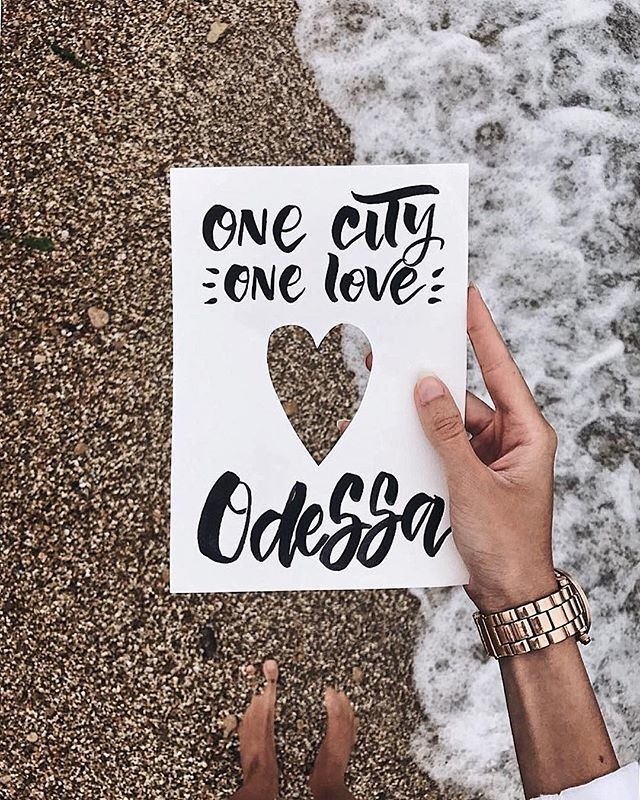 ONE CITY
ONE LOVE
Odessa